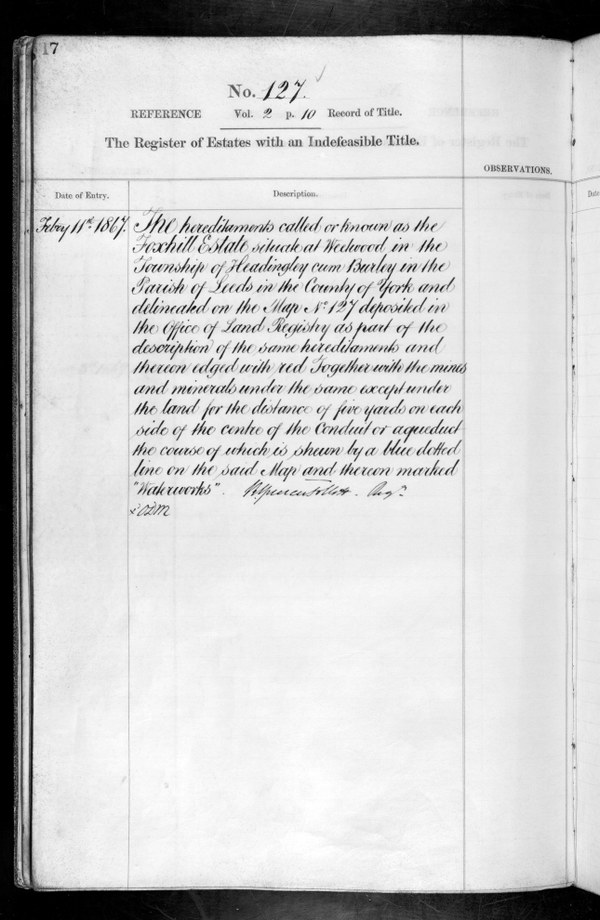 17
No. 127.
REFERENCE Vol. 2 p. 10 Record of Title.
The Register of Estates with an Indefeasible Title.
OBSERVATIONS.
Date of Entry.
Description.
Date
Febry 11th 1867.
The hereditaments called or known as the
Foxhill Estate situate at Weetwood in the
Township of Headingley cum Burley in the
Parish of Leeds in the County of York and
delineated on the Map No. 127 deposited in
the Office of Land Registry as part of the
description of the same hereditaments and
thereon edged with red Together with the mines
and minerals under the same except under
the land for the distance of five yards on each
side of the centre of the Conduit or aqueduct
the course of which is shewn by a blue dotted
line on the said Map and thereon marked
"Waterworks".